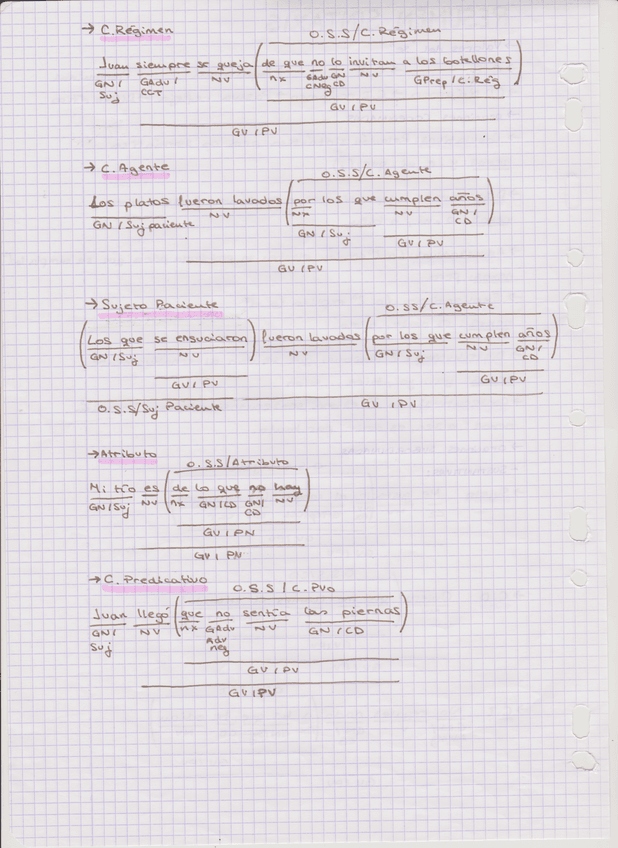 → C. Régimen
O.S.S/C. Régimen
Juan siempre se queja (de que no lo invitan a los botellones)
GN/ GAdv/ NV nx GAdv GN NV GPrep/C.Rég
Suj CCT CNeg CD
GV/PV
GV/PV
→ C. Agente
O.S.S/C. Agente
Los platos fueron lavados (por los que cumplen años)
GN/Suj paciente NV Nx NV GN/
GN/Suj CD
GV/PV
GV/PV
→ Sujeto Paciente
O.SS/C. Agente
(Los que se ensuciaron) fueron lavados (por los que cumplen años)
GN/Suj NV NV GN/Suj NV GN/
CD
GV/PV GV/PV
O.S.S/Suj Paciente GV/PV
→ Atributo
O.S.S/Atributo
Mi tío es (de lo que no hay)
GN/Suj NV nx GN/CD GN/ NV
CD
GV/PN
GV/PN
→ C. Predicativo
O.S.S/C.Pvo
Juan llegó (que no sentía las piernas)
GN/ NV nx GAdv NV GN/CD
Suj Adv
neg
GV/PV
GV/PV